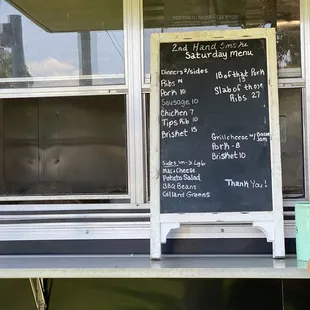 2nd Hand Smoke
Saturday menu
Dinners w/2sides
Ribs 14
Pork 10
Sausage 10
Chicken 7
Tips Rib 10
Brisket 15
Sides sm-3 Lg6
Mac & Cheese
Potato Salad
BBQ Beans
Collard Greens
1 lb of that Pork
15
Slab of those
Ribs 27
Grillcheese w/Bacon
Jam
Pork-8
Brisket 10
Thank You!